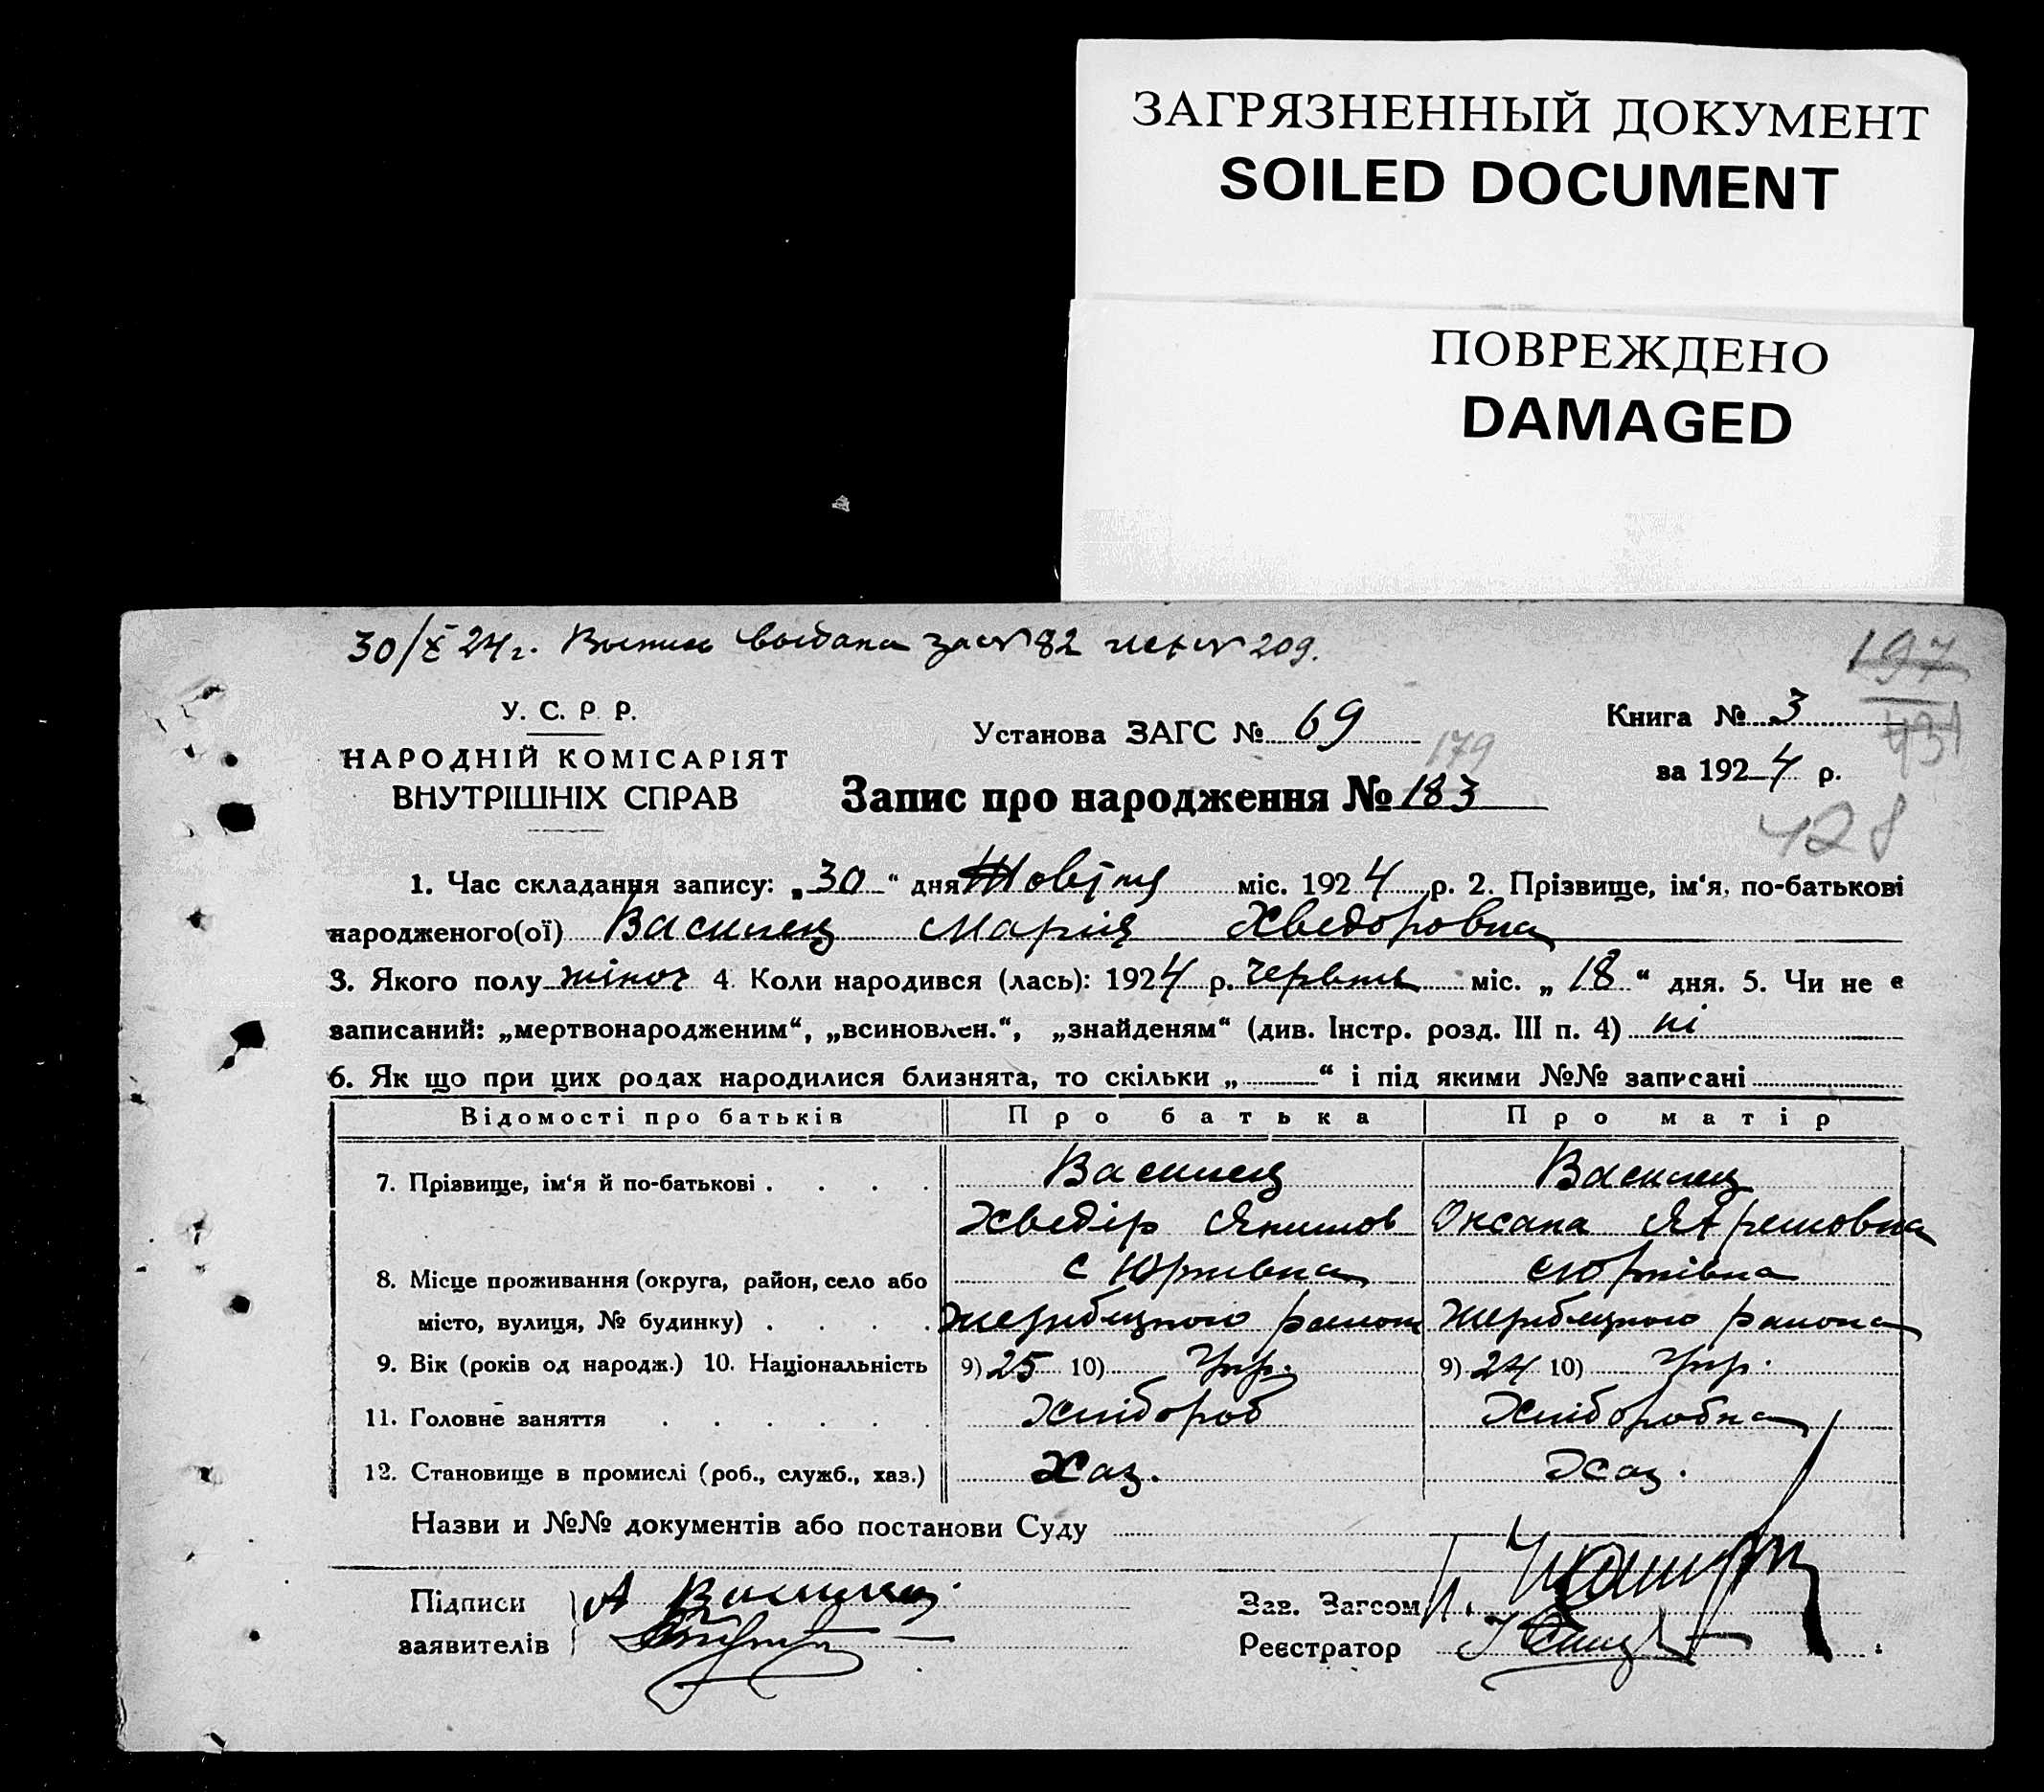 ЗАГРЯЗНЕННЫЙ ДОКУМЕНТ
SOILED DOCUMENT
ПОВРЕЖДЕНО
DAMAGED
30/X 24 г. Выпись выдана за № 82 209.
197
431
У. С. Р. Р.
НАРОДНІЙ КОМІСАРІЯТ
ВНУТРІШНІХ СПРАВ
Установа ЗАГС № 69
Книга № 3
за 1924 р.
179
Запис про народження № 183
428
1. Час складання запису: „30“ дня Жовтня міс. 1924 р. 2. Прізвище, ім‘я, по-батькові
народженого(ої) Василец Мария Хведоровна
3. Якого полу жіноч 4. Коли народився (лась): 1924 р. червень міс. „18“ дня. 5. Чи не є
записаний: „мертвонародженим“, „всиновлен.“, „знайденям“ (див. Інстр. розд. III п. 4) ні
6. Як що при цих родах народилися близнята, то скільки „ “ і під якими №№ записані
Відомості про батьків Про батька Про матір
7. Прізвище, ім‘я й по-батькові . . . . Василец Василец
Хведір Якимов Оксана
8. Місце проживання (округа, район, село або с Юрківка с Юрківка
місто, вулиця, № будинку) . . . . Жеребецкого района Жеребецкого района
9. Вік (років од народж.) 10. Національність 9) 25 10) Укр. 9) 24 10) Укр.
11. Головне заняття . . . . . . Хлібороб Хліборобка
12. Становище в промислі (роб., служб., хаз.) Хаз. Хаз.
Назви и №№ документів або постанови Суду
Підписи А Василец
заявителів
Зав. Загсом
Реєстратор